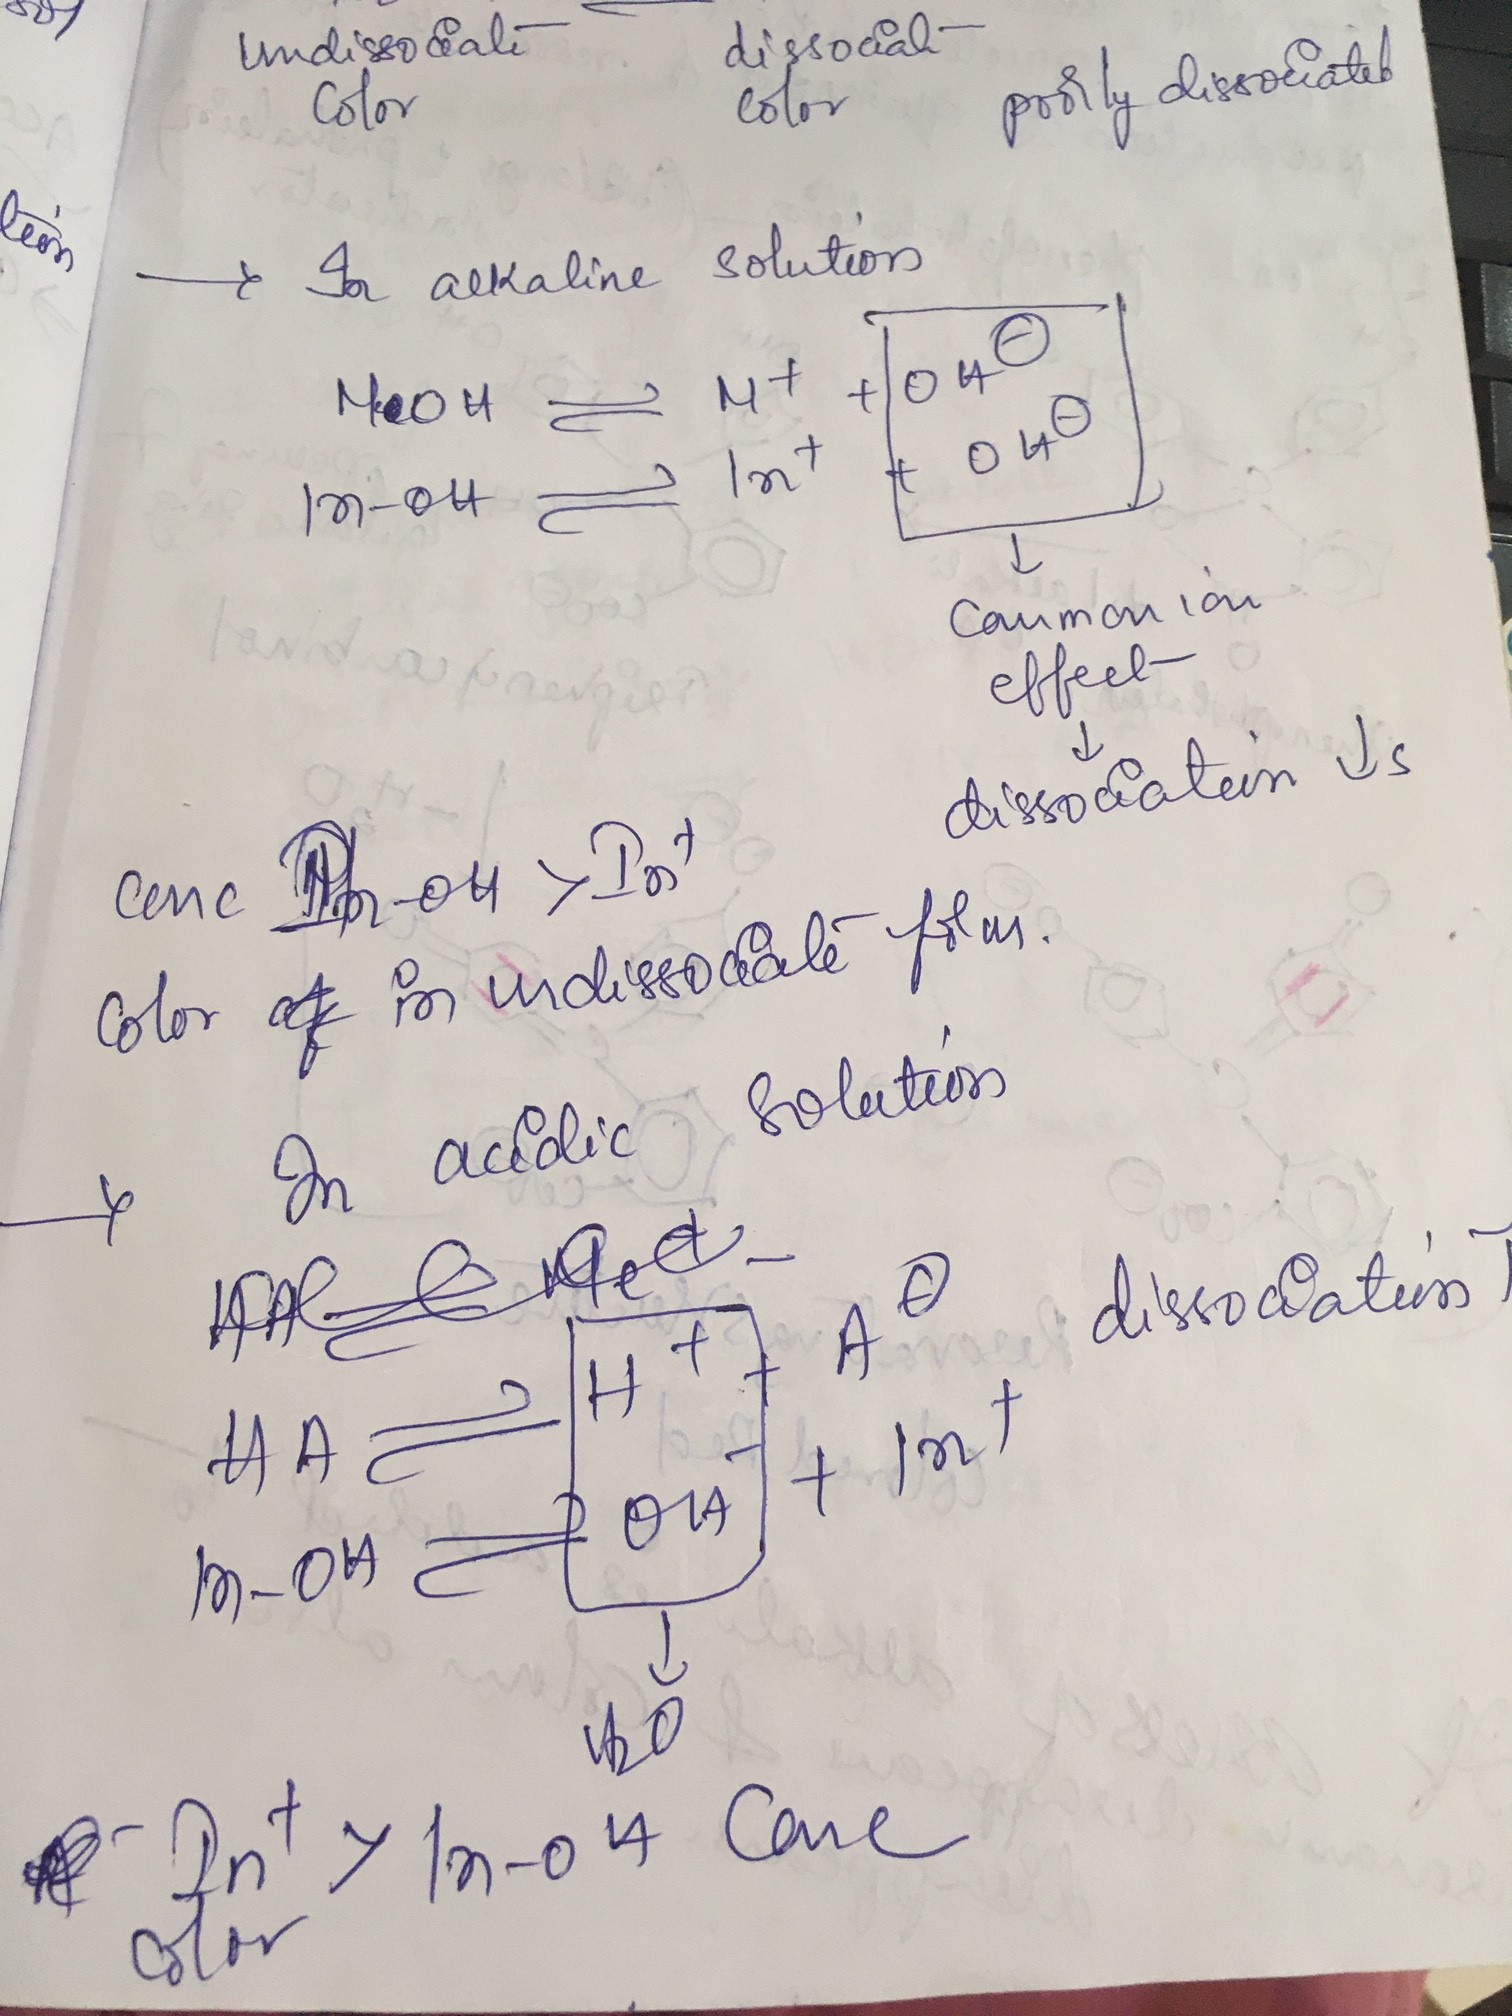 undissociate dissociate
color color poorly dissociated
→ In alkaline solution
MeOH ⇌ M+ + OH⊖
In-OH ⇌ In+ + OH⊖
↓
Common ion
effect
↓
dissociation ↓s
conc In-OH > In+
color in undissociate form.
→ In acidic solution
HA ⇌ H+ + A⊖ dissociation ↑
In-OH ⇌ OH- + In+
↓
H2O
In+ > In-OH Conc
color